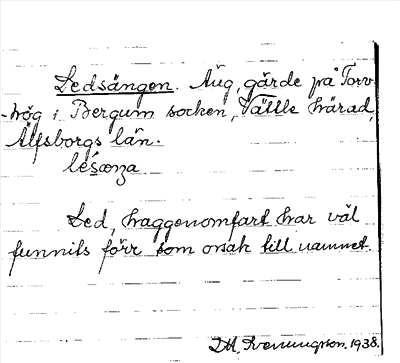 Ledsängen. Äng, gärde på Torv-
-hög i Bergum socken, Vättle härad,
Älfsborgs län.
Led, haggenomfart har väl
funnits förr som orsak till namnet.
1938.